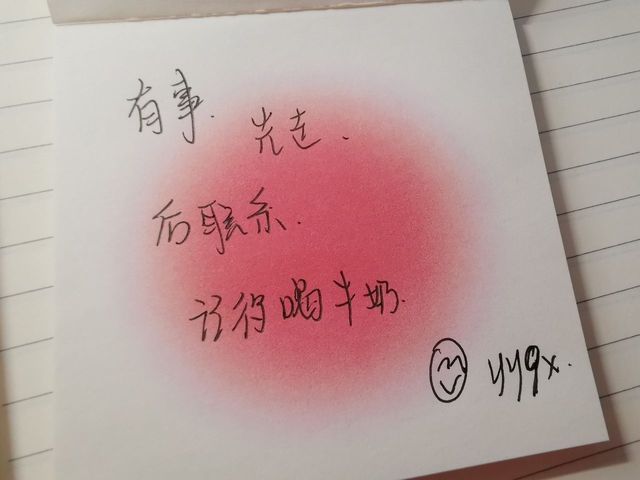 有事. 先走.
后联系.
记得喝牛奶.
yy9x.